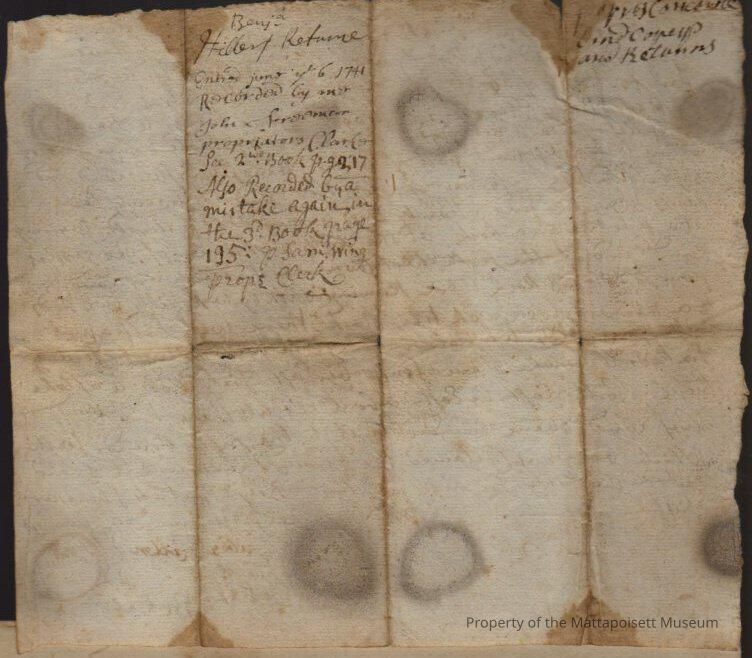 Benj:a
Hillers Returne
Entred june ye 6 1741
Recorded by mee
John Freeman
propriators Clarke
See 2nd Book page 217
Also Recorded by a
mistake again in
the 3d Book page
195: p Sam. Wing
Props Clerk
and Copeys
and Returns
Property of the Mattapoisett Museum